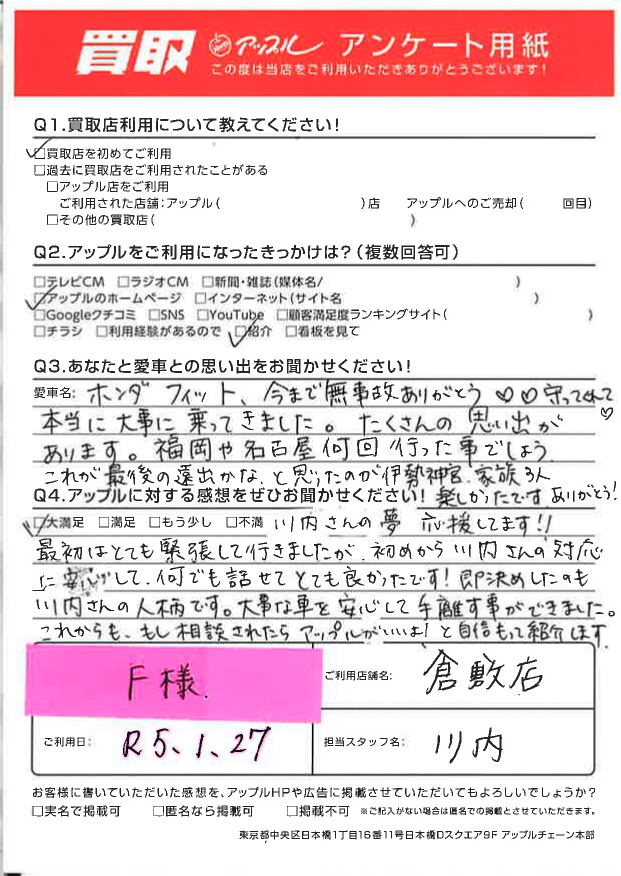 買取 アップル アンケート用紙
この度は当店をご利用いただきありがとうございます!
Q1.買取店利用について教えてください!
☑買取店を初めてご利用
□過去に買取店をご利用されたことがある
□アップル店をご利用
ご利用された店舗:アップル( )店 アップルへのご売却( 回目)
□その他の買取店( )
Q2.アップルをご利用になったきっかけは?(複数回答可)
□テレビCM □ラジオCM □新聞・雑誌(媒体名/ )
☑アップルのホームページ □インターネット(サイト名 )
□Googleクチコミ □SNS □YouTube □顧客満足度ランキングサイト( )
□チラシ □利用経験があるので ☑紹介 □看板を見て
Q3.あなたと愛車との思い出をお聞かせください!
愛車名: ホンダ フィット、今まで無事故ありがとう♡♡守ってくれて♡
本当に大事に乗ってきました。たくさんの思い出が
あります。福岡や名古屋何回行った事でしょう
これが最後の遠出かな、と思ったのが伊勢神宮、家族3人
楽しかったです ありがとう!
Q4.アップルに対する感想をぜひお聞かせください!
☑大満足 □満足 □もう少し □不満 川内さんの夢 応援してます!!
最初はとても緊張して行きましたが、初めから川内さんの対応
に安心して、何でも話せてとても良かったです!即決めしたのも
川内さんの人柄です。大事な車を安心して手離す事ができました。
これからも、もし相談されたらアップルがいいよ!と自信もって紹介します。
F様.
ご利用店舗名: 倉敷店
ご利用日: R5、1、27
担当スタッフ名: 川内
お客様に書いていただいた感想を、アップルHPや広告に掲載させていただいてもよろしいでしょうか?
□実名で掲載可 □匿名なら掲載可 □掲載不可 ※ご記入がない場合は匿名での掲載とさせていただきます。
東京都中央区日本橋1丁目16番11号日本橋Dスクエア9F アップルチェーン本部